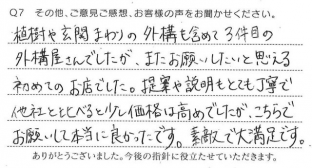 Q7 その他、ご意見ご感想、お客様の声をお聞かせください。
植樹や玄関まわりの外構も含めて3件目の
外構屋さんでしたが、またお願いしたいと思える
初めてのお店でした。提案や説明もとても丁寧で
他社とと比べると少し価格は高めでしたが、こちらで
お願いして本当に良かったです。素敵で大満足です。
ありがとうございました。今後の指針に役立たせていただきます。